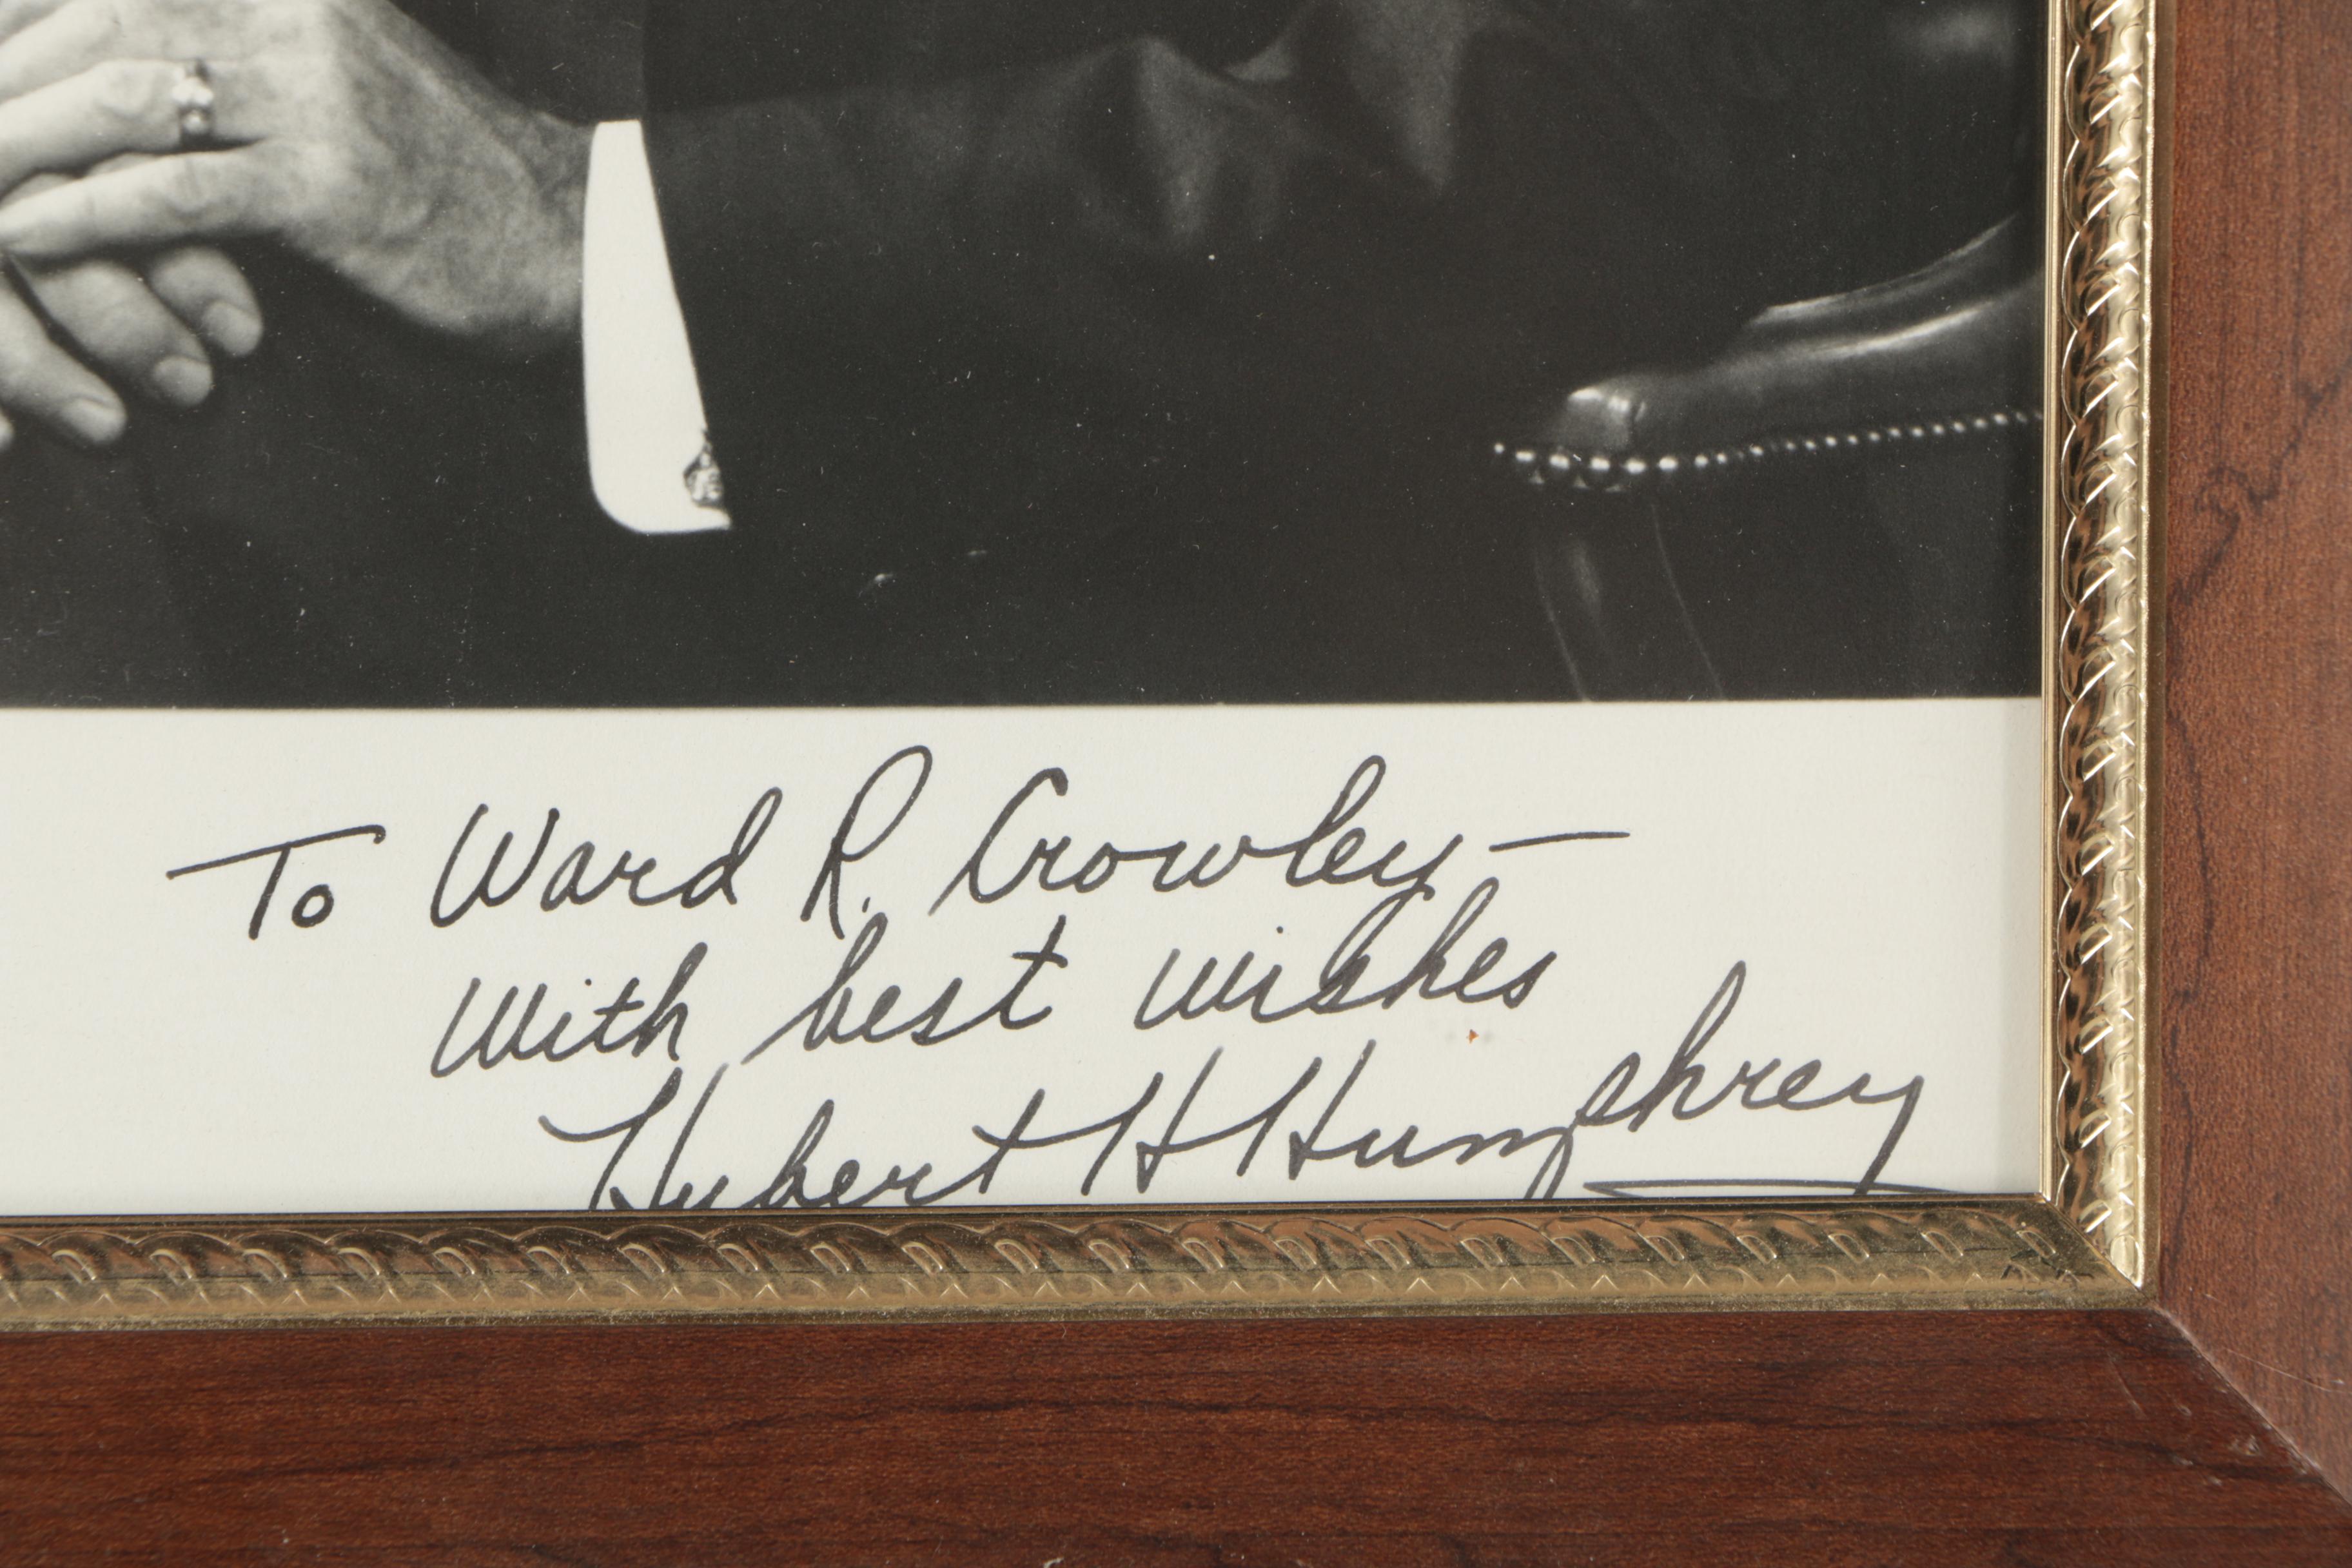 To Ward R. Crowley —
With best wishes
Hubert H Humphrey